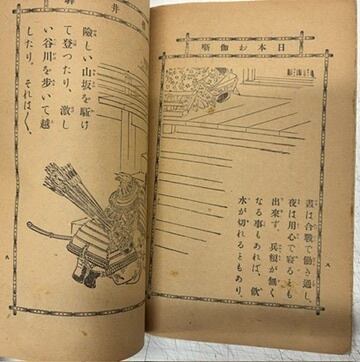 日本お伽噺
晝は合戰で働き通し、
夜は用心で寝るとも
出來ず、兵糧が無く
なる事もあれば、飲
水が切れるともあり、
八
井驛
險しい山坂を駈け
て登つたり、激し
い谷川を歩いて越
したり。それは〱、
九